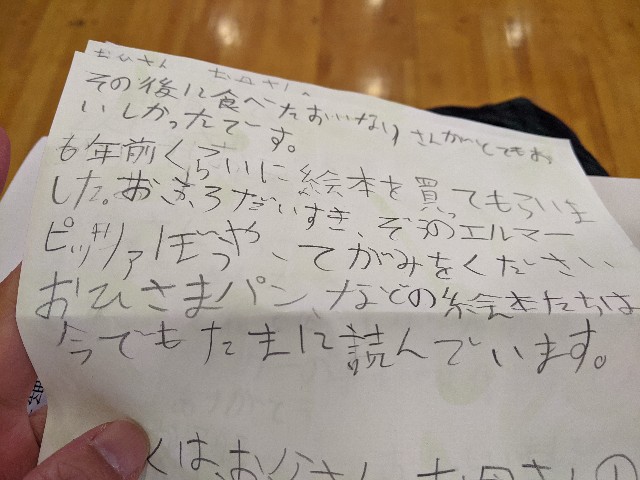 お父さん お母さん。
その後に食べたおいなりさんがとてもお
いしかったでーす。
6年前くらいに絵本を買ってもらいま
した。おふろだいすき、ぞうのエルマー
ピッツァぼうや、てがみをください
おひさまパン、などの絵本たちは
今でもたまに読んでいます。
くは、お父さん、お母さんの